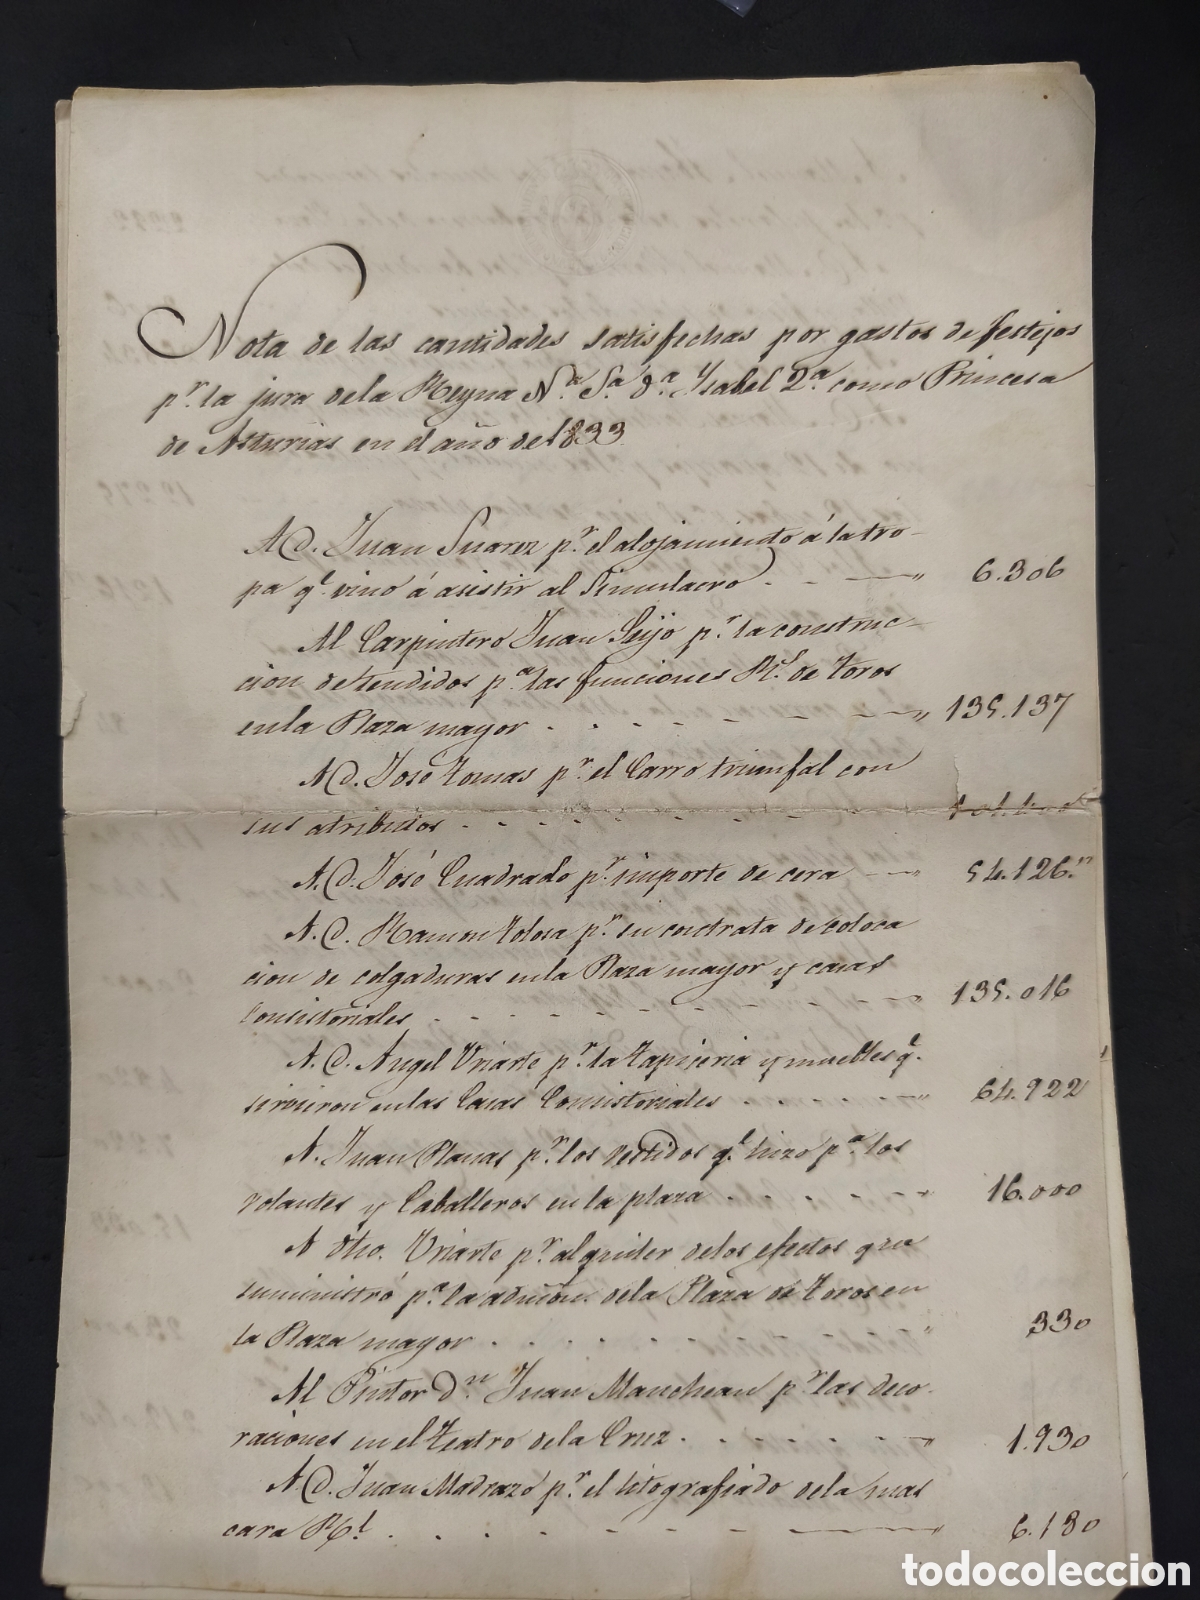 Nota de las cantidades satisfechas por gastos de festejos
pr. la jura dela Reyna Na. Sa. da. Ysabel 2a. como Princesa
de Asturias en el año de 1833
A D. Juan Suarez pr. el alojamiento á la tro-
pa qe. vino á asistir al Simulacro 6.306
Al Carpintero Juan Seijo pr. la construc-
cion de tendidos pa. las funciones Rs. de Toros
en la Plaza mayor 135.137
A D. José Tomas pr. el Carro triunfal con
sus atributos
A. D. José Cuadrado pr. importe de cera 54.126
A. D. Ramon Tolosa pr. su contrata de coloca
cion de colgaduras en la Plaza mayor y casas
Consistoriales 135.016
A. D. Angel Uriarte pr. la tapiseria y muebles qe.
sirvieron en las Casas Consistoriales 64.922
A. Juan Planas pr. los vestidos qe. hizo pa. los
volantes y Caballeros en la plaza 16.000
A dho. Uriarte pr. alquiler delos efectos que
suministró pa. la dela Plaza de Toros en
la Plaza mayor 330
Al Pintor Dn. Juan pr. las deco-
raciones en el Teatro dela Cruz 1.930
A. D. Juan Madrazo pr. el litografiado dela mas
cara Rl. 6.180
todocoleccion